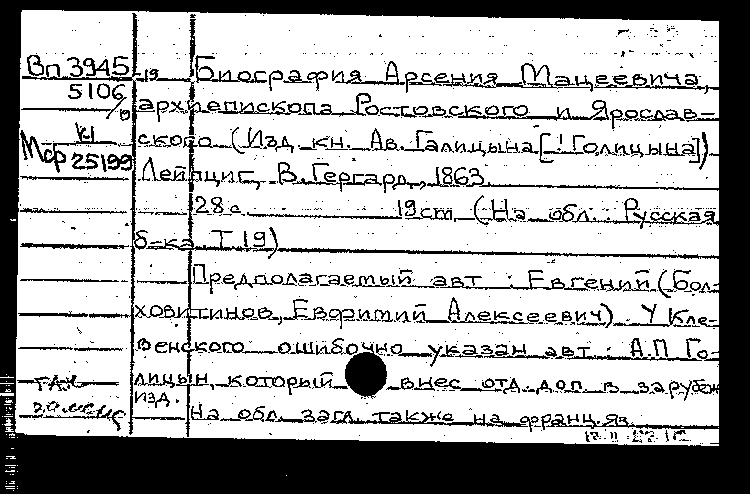 Вп 3945-19 Биография Арсения Мацеевича,
5106/ архиепископа Ростовского и Ярослав-
К1 ского (Изд. кн. Ав. Галицына [! Голицына])
Мф 25199 Лейпциг, В. Гергард, 1863.
28 с. 19 см (На обл.: Русская
б-ка. Т 19)
Предполагаемый авт.: Евгений (Бол-
ховитинов, Евфимий Алексеевич). У Кле-
венского ошибочно указан авт.: А.П Го-
лицын, который внес отд. доп. в заруб.
изд.
На обл. загл. также на франц. яз.